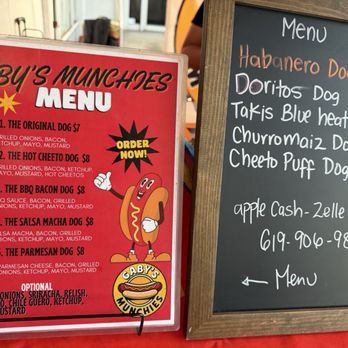 BY'S MUNCHIES
MENU
1. THE ORIGINAL DOG $7
GRILLED ONIONS, BACON,
KETCHUP, MAYO, MUSTARD
2. THE HOT CHEETO DOG $8
BACON, GRILLED ONIONS,
KETCHUP, MAYO, MUSTARD, HOT CHEETOS
THE BBQ BACON DOG $8
SAUCE, BACON, GRILLED
ONIONS, KETCHUP, MAYO, MUSTARD
THE SALSA MACHA DOG $8
SALSA MACHA, BACON, GRILLED
ONIONS, KETCHUP, MAYO, MUSTARD
THE PARMESAN DOG $8
PARMESAN CHEESE, BACON, GRILLED
ONIONS, KETCHUP, MAYO, MUSTARD
OPTIONAL
ONIONS, SRIRACHA, RELISH,
CHILE GUERO, KETCHUP,
MUSTARD
ORDER
NOW!
GABY'S
MUNCHIES
Menu
Habanero Do
Doritos Dog
Takis Blue heat
Churromaiz Do
Cheeto Puff Dog
apple Cash-Zelle
619-906-98
← Menu